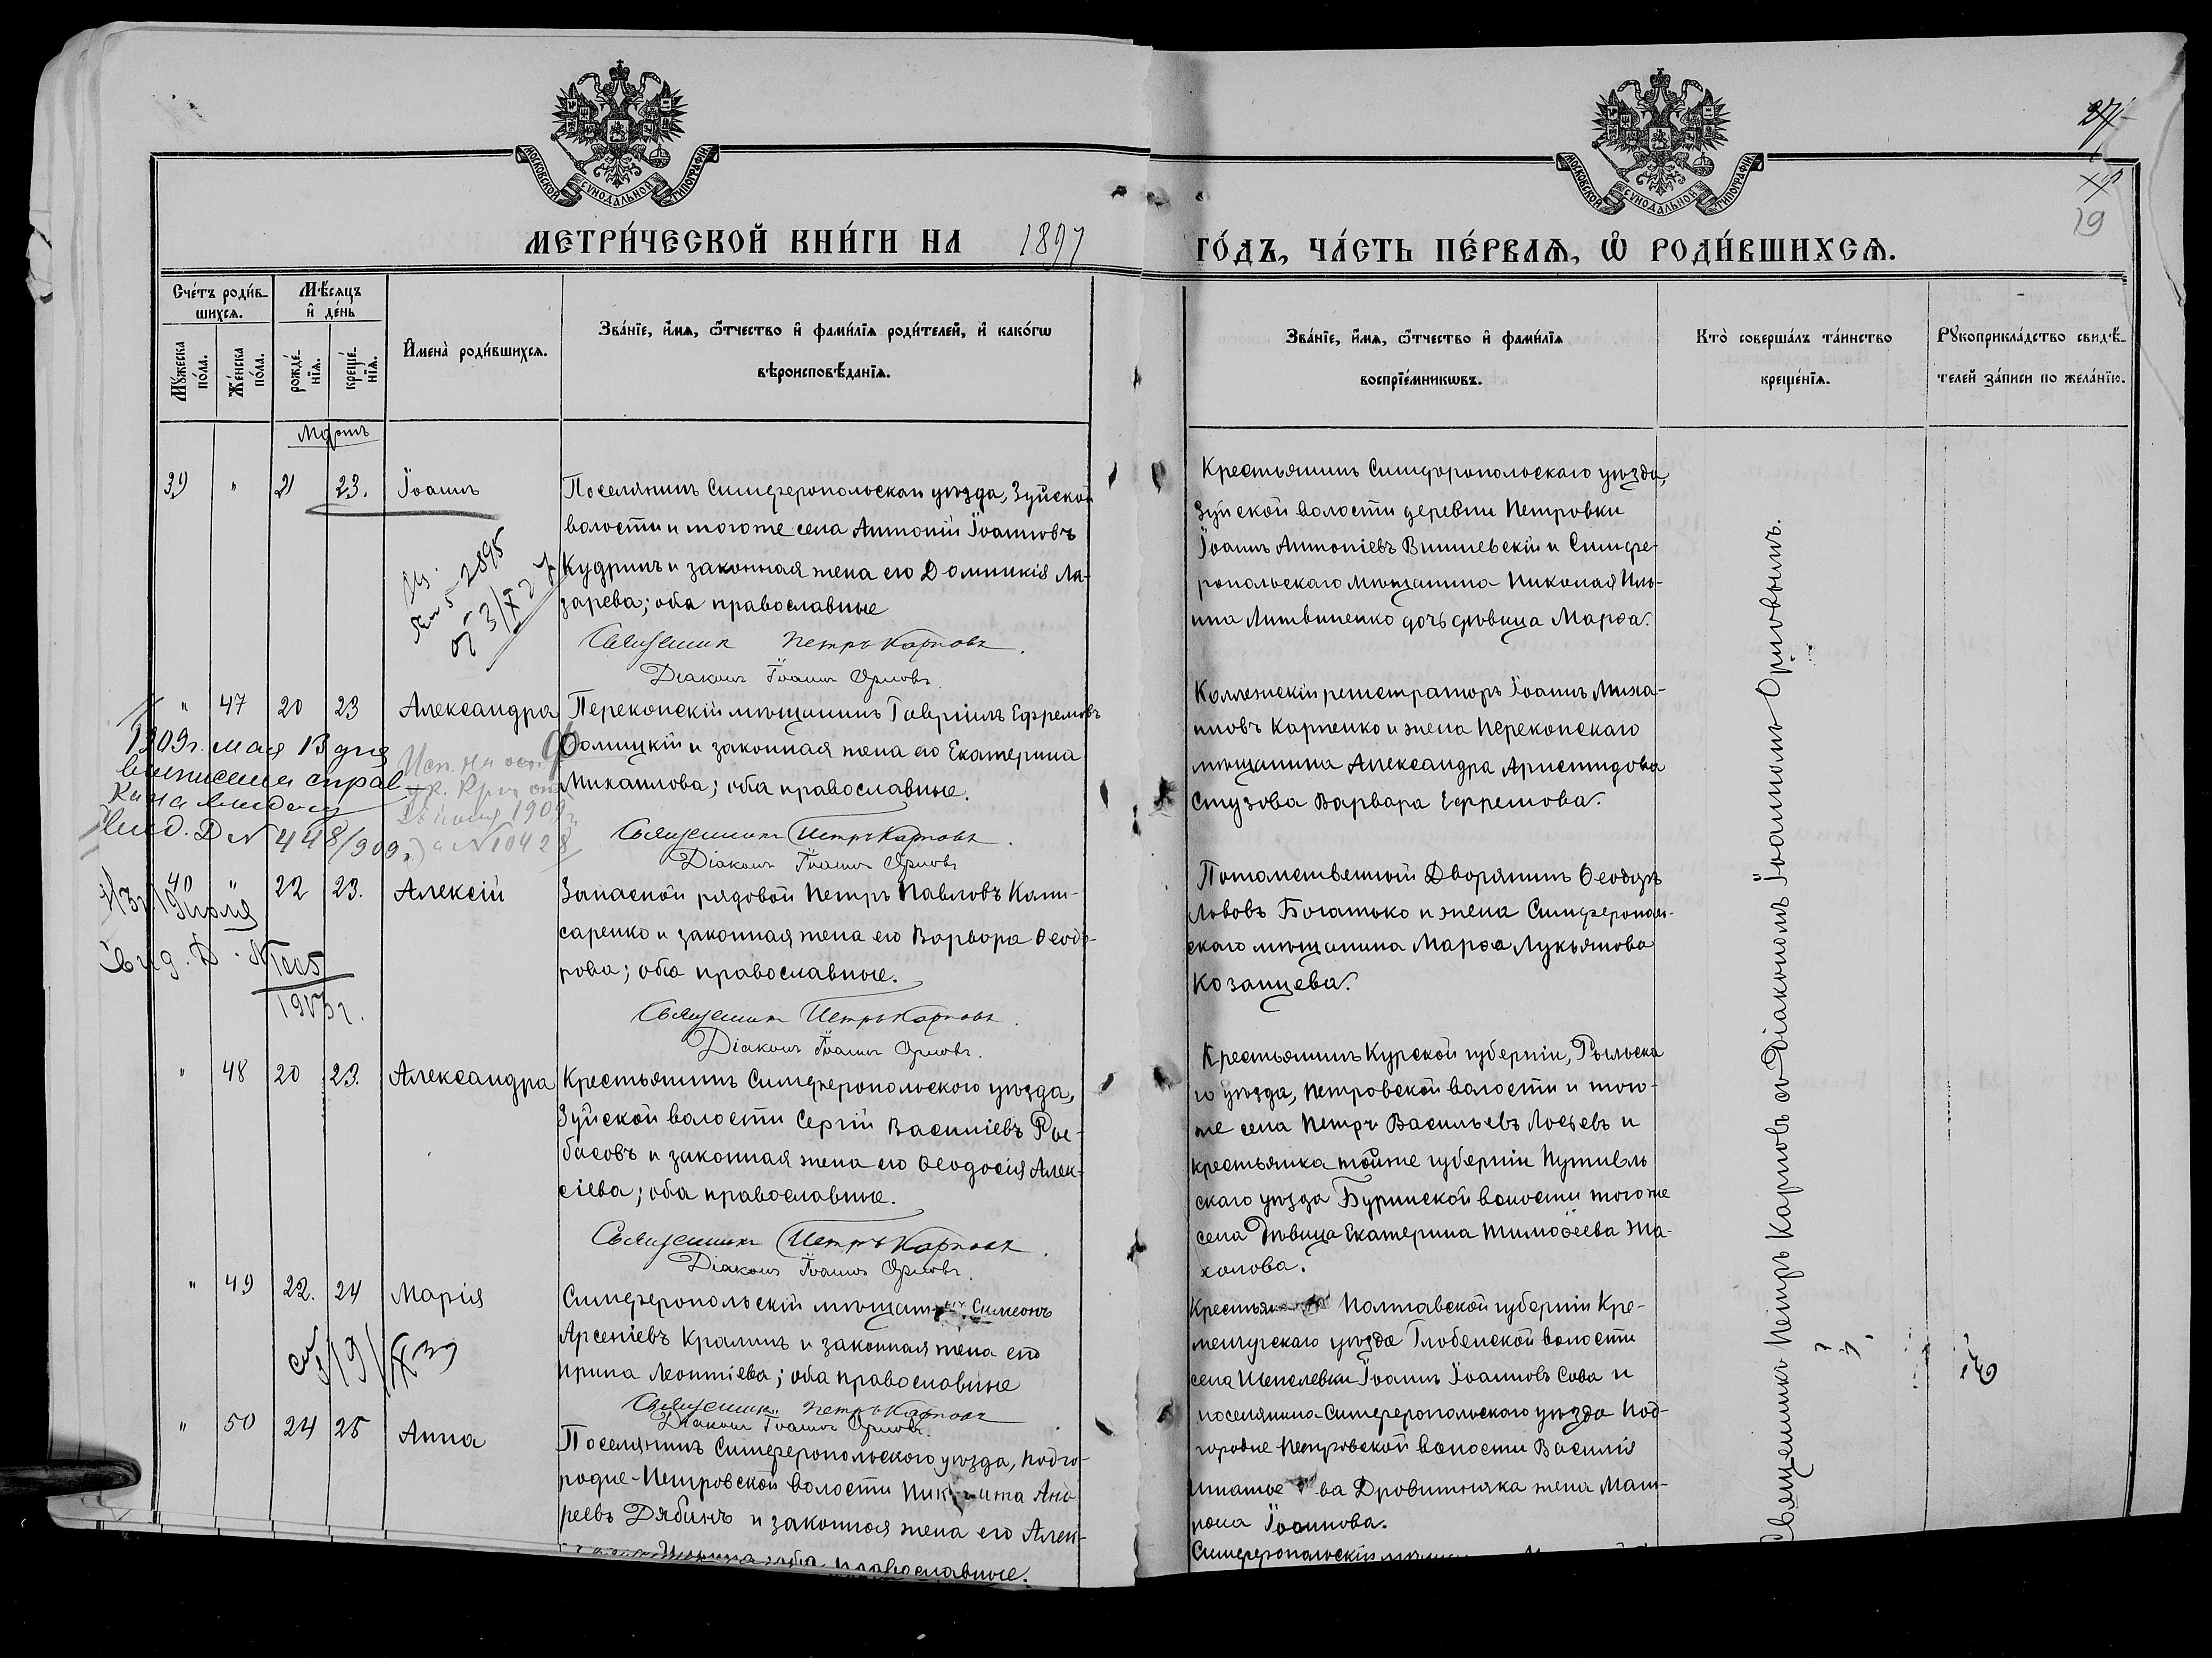 27
19
МОСКОВСКОЙ СУНОДАЛЬНОЙ ТИПОГРАФІИ
МОСКОВСКОЙ СУНОДАЛЬНОЙ ТИПОГРАФІИ
МЕТРИ́ЧЕСКОЙ КНИ́ГИ НА 1897
ГО́ДЪ, ЧА́СТЬ ПЕ́РВАѦ, Ѡ҆ РОДИ́ВШИХСѦ.
Сче́тъ роди́в-
шихсѧ.
Мѣ́сѧцъ
и҆ де́нь
Мꙋ́жеска
по́ла.
Же́нска
по́ла.
рожде́-
нїѧ.
креще́-
нїѧ.
И҆мена̀ роди́вшихсѧ.
Зва́нїе, и҆́мѧ, ѻ҆́тчество и҆ фами́лїѧ роди́телей, и҆ како́гѡ
вѣроисповѣ́данїѧ.
Зва́нїе, и҆́мѧ, ѻ҆́тчество и҆ фами́лїѧ
воспрїе́мникѡвъ.
Кто̀ соверша́лъ та́инство
креще́нїѧ.
Рꙋкоприкла́дство свидѣ́-
телей за́писи по жела́нїю.
Мартъ
39 " 21 23. Іоаннъ
Поселянинъ Симферопольскаго уѣзда, Зуйской
волости и тогоже села Антоній Іоанновъ
Кудринъ и законная жена его Домникія Ла-
зарева; оба православные
Священникъ Петръ Карповъ.
Діаконъ Іоаннъ Орловъ.
Крестьянинъ Симферопольскаго уѣзда,
Зуйской волости деревни Петровки
Іоаннъ Антоніевъ Вишневскій и Симфе-
ропольскаго мѣщанина Николая Иль-
ина Литвиненко дочь дѣвица Марѳа.
" 47 20 23 Александра
Перекопскій мѣщанинъ Гавріилъ Ефремовъ
и законная жена его Екатерина
Михаилова; оба православные.
Священникъ Петръ Карповъ.
Діаконъ Іоаннъ Орловъ
1909 г. мая 13 дня
448/909 г.
1909
N 10428
Коллежскій регистраторъ Іоаннъ Миха-
иловъ Карпенко и жена Перекопскаго
мѣщанина Александра Аристидова
Стузова Варвара Ефремова.
40 " 22 23. Алексій
Запасной рядовой Петръ Павловъ Коми-
саренко и законная жена его Варвара Ѳеодо-
рова; оба православные.
Священникъ Петръ Карповъ.
Діаконъ Іоаннъ Орловъ.
Потомственный Дворянинъ Ѳеодоръ
Львовъ Богатько и жена Симферополь-
скаго мѣщанина Марѳа Лукьянова
Козанцева.
" 48 20 23. Александра
Крестьянинъ Симферопольскаго уѣзда,
Зуйской волости Сергій Василіевъ Рые-
басовъ и законная жена его Ѳеодосія Алек-
сіева; оба православные.
Священникъ Петръ Карповъ.
Діаконъ Іоаннъ Орловъ.
Крестьянинъ Курской губерніи, Рыльска
го уѣзда, Петровской волости и того-
же села Петръ Васильевъ Лосевъ и
крестьянка тойже губерніи Путивль
скаго уѣзда Бурынской волости тогоже
села Дѣвица Екатерина Тимоѳеева Жа-
холова.
" 49 22. 24 Марія
Симферопольскій мѣщанинъ Симеонъ
Арсеніевъ Кралинъ и законная жена его
Ирина Леонтіева; оба православные
Священникъ Петръ Карповъ
Діаконъ Іоаннъ Орловъ.
Полтавской губерніи Кре-
менчугскаго уѣзда Глобенской волости
села Шепелевки Іоаннъ Іоанновъ Сова и
поселянина Симферопольскаго уѣзда Под-
городне-Петровской волости Василія
Дровитняка жена Мат-
рона Іоаннова.
" 50 24 25 Анна
Поселянинъ Симферопольскаго уѣзда, Подго-
родне-Петровской волости Никита Анд
реевъ Дябинъ и законная жена его Алек-
оба православные.
Симферопольскій
Священникъ Петръ Карповъ съ Діакономъ Іоанномъ Орловымъ.